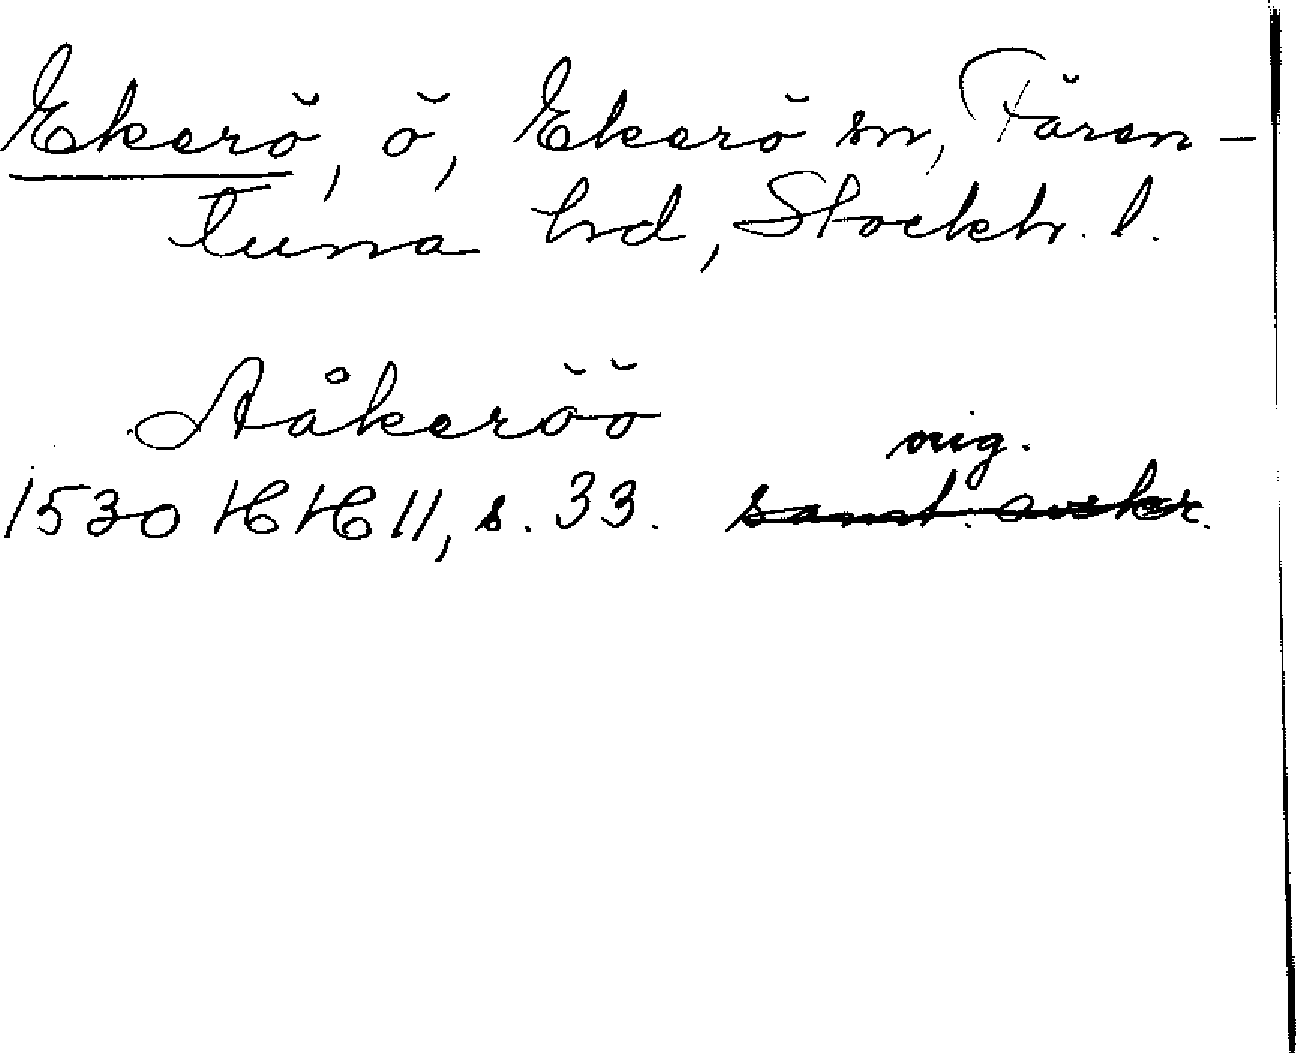 Ekerö, ö, Ekerö sn, Fären-
tuna hrd, Stockh. l.
Aåkeröö
orig.
1530 HH 11, s. 33. samt. avskr.